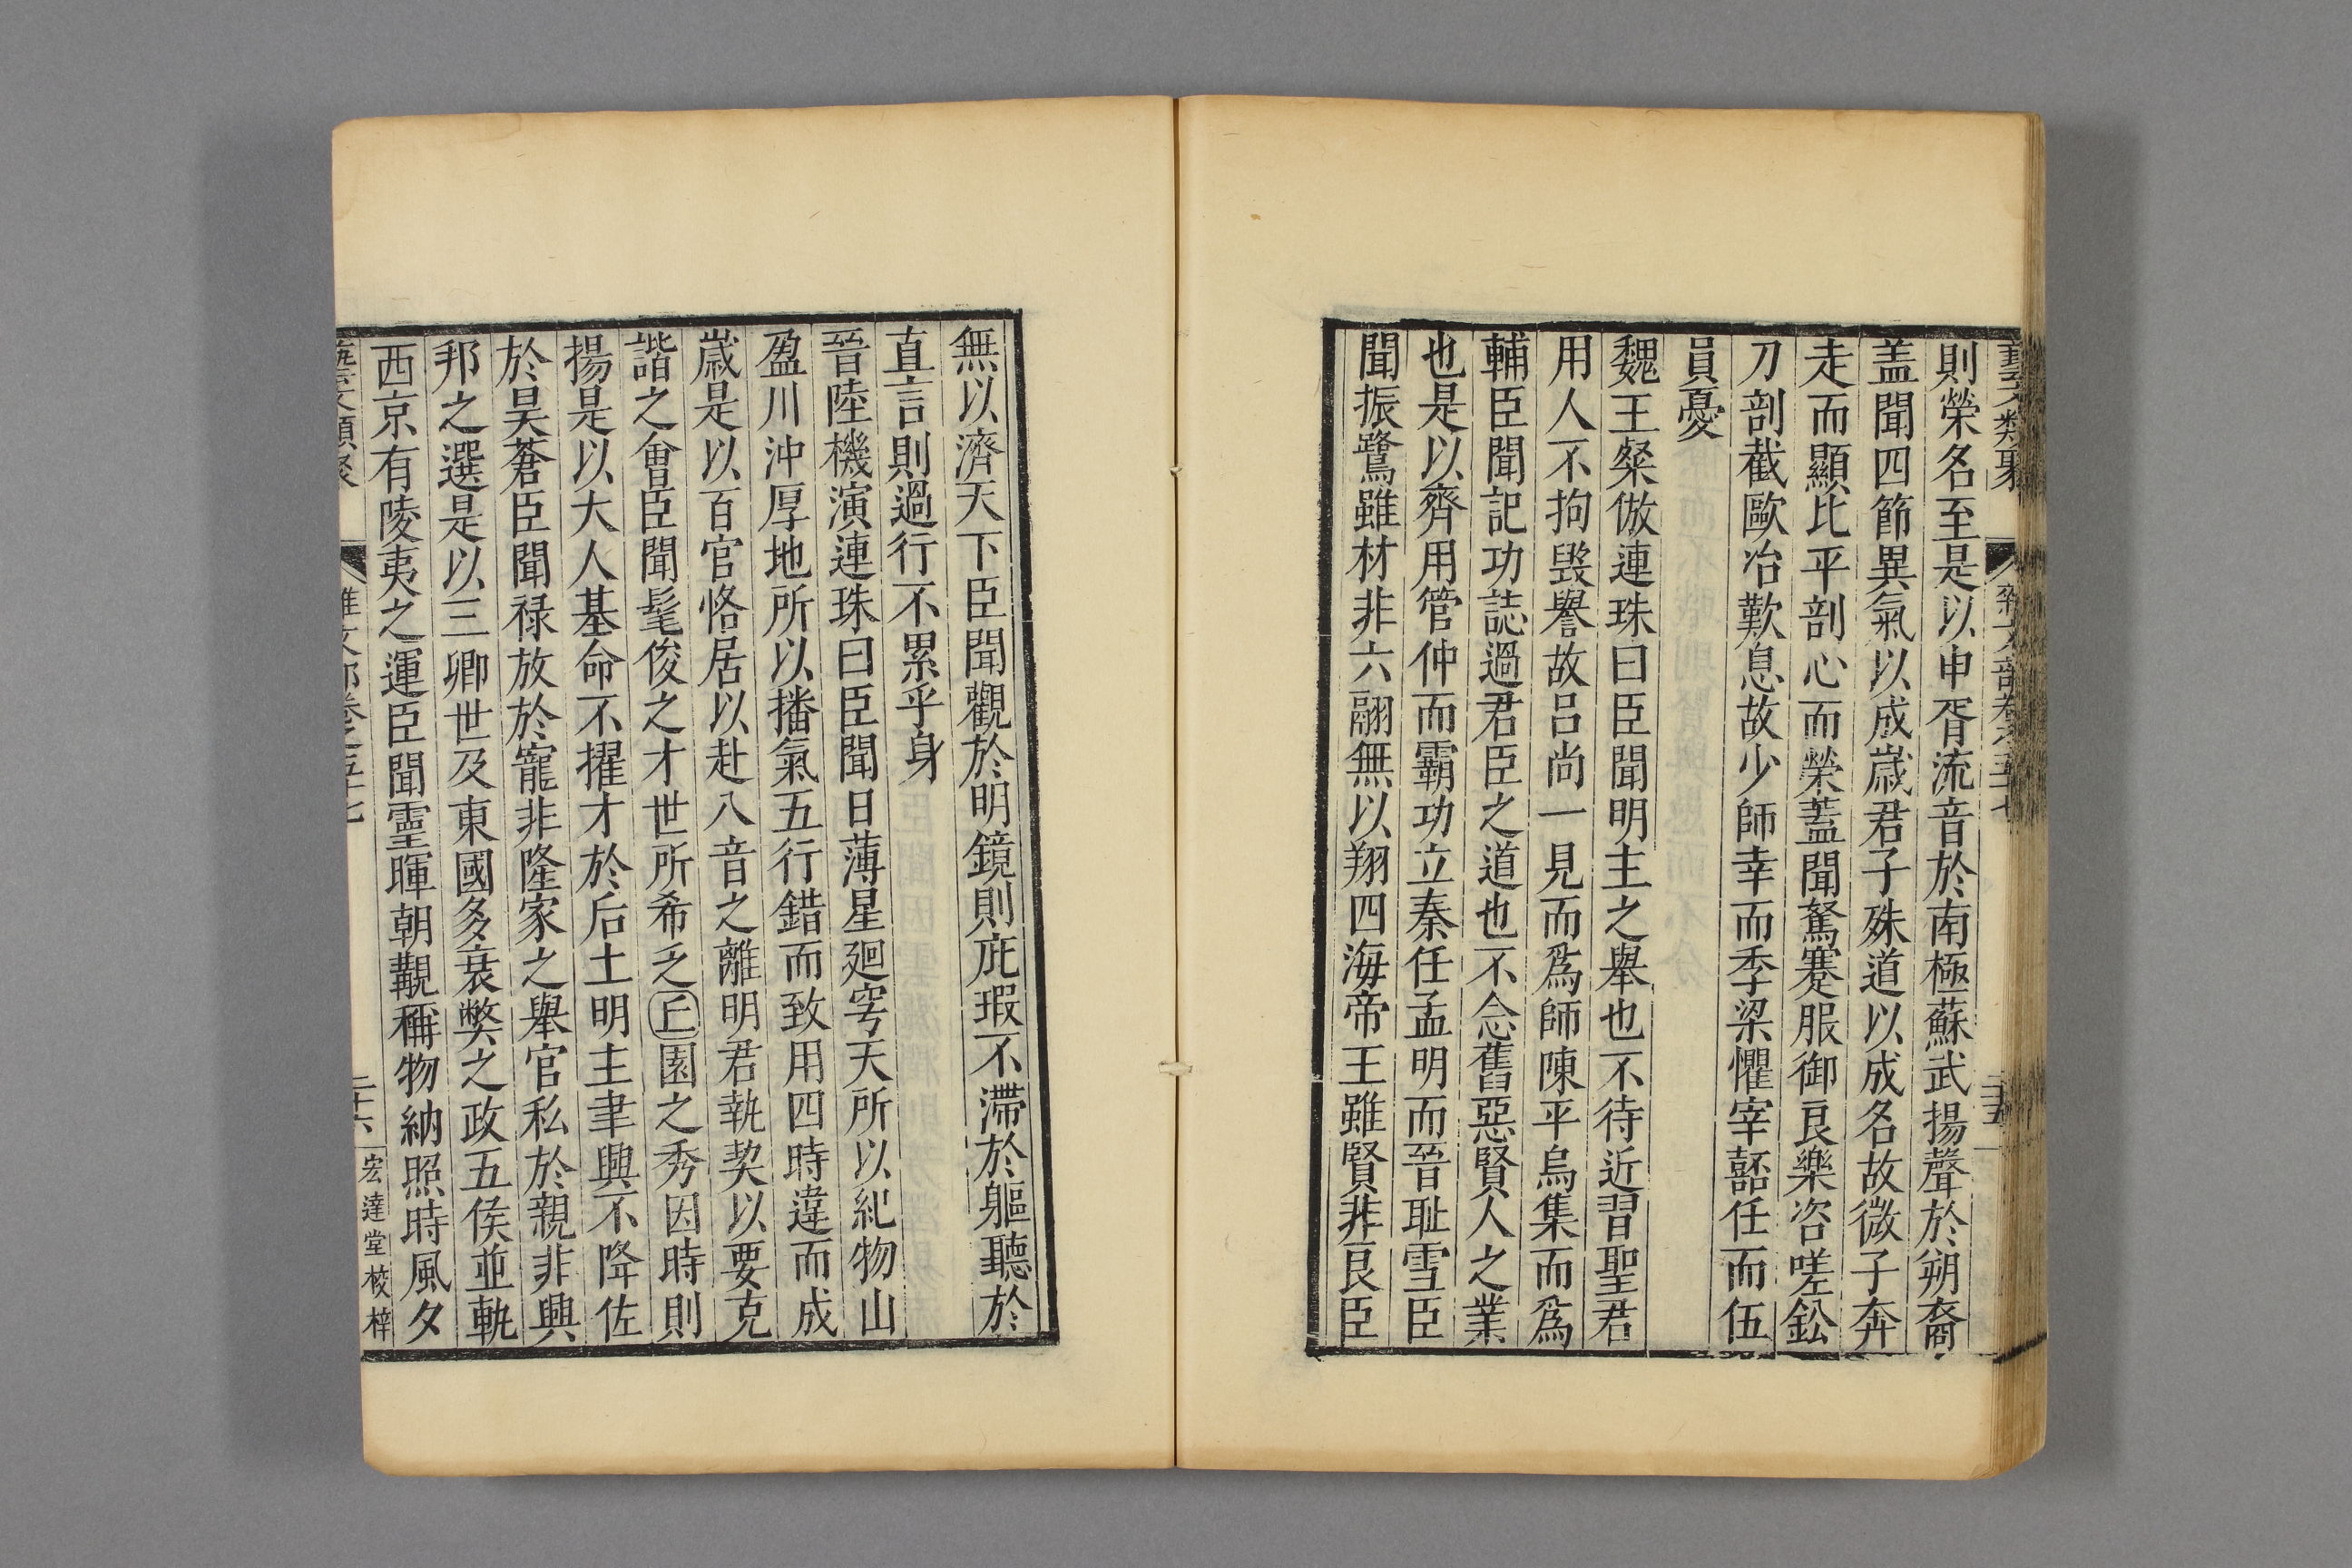 藝文類聚 雜文部卷之五十七 二十五
則榮名至是以申胥流音於南極蘇武揚聲於朔裔
盖聞四節異氣以成歲君子殊道以成名故微子奔
走而顯比平剖心而榮蓋聞駑蹇服御良樂咨嗟鈆
刀剖截歐冶歎息故少師幸而季梁懼宰嚭任而伍
員憂
魏王粲倣連珠曰臣聞明主之舉也不待近習聖君
用人不拘毀譽故呂尚一見而爲師陳平烏集而爲
輔臣聞記功誌過君臣之道也不念舊惡賢人之業
也是以齊用管仲而霸功立秦任孟明而晉耻雪臣
聞振鷺雖材非六翮無以翔四海帝王雖賢非良臣
無以濟天下臣聞觀於明鏡則疵瑕不滯於軀聽於
直言則過行不累乎身
晉陸機演連珠曰臣聞日薄星廻穹天所以紀物山
盈川沖厚地所以播氣五行錯而致用四時違而成
歲是以百官恪居以赴八音之離明君執契以要克
諧之會臣聞髦俊之才世所希乏丘園之秀因時則
揚是以大人基命不擢才於后土明主聿興不降佐
於昊蒼臣聞禄放於寵非隆家之舉官私於親非興
邦之選是以三卿世及東國多衰弊之政五侯並軌
西京有陵夷之運臣聞靈暉朝覯稱物納照時風夕
藝文類聚 雜文部卷之五十七 二十六 宏達堂校梓